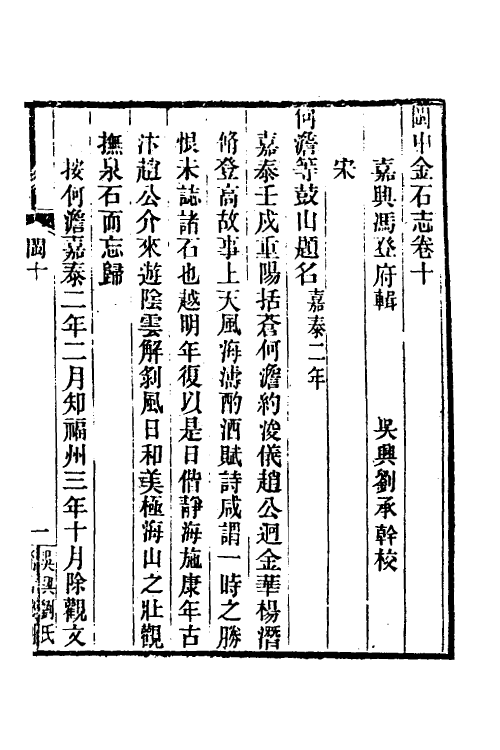 閩中金石志卷十
嘉興馮登府輯 吳興劉承幹校
宋
何澹等鼓山題名 嘉泰二年
嘉泰壬戌重陽括蒼何澹約浚儀趙公迥金華楊潛
脩登高故事上天風海濤酌酒賦詩咸謂一時之勝
恨未誌諸石也越明年復以是日偕靜海施康年古
汴趙公介來遊陰雲解剝風日和美極海山之壯觀
撫泉石而忘歸
按何澹嘉泰二年二月知福州三年十月除觀文
閩十
一
吳興劉氏